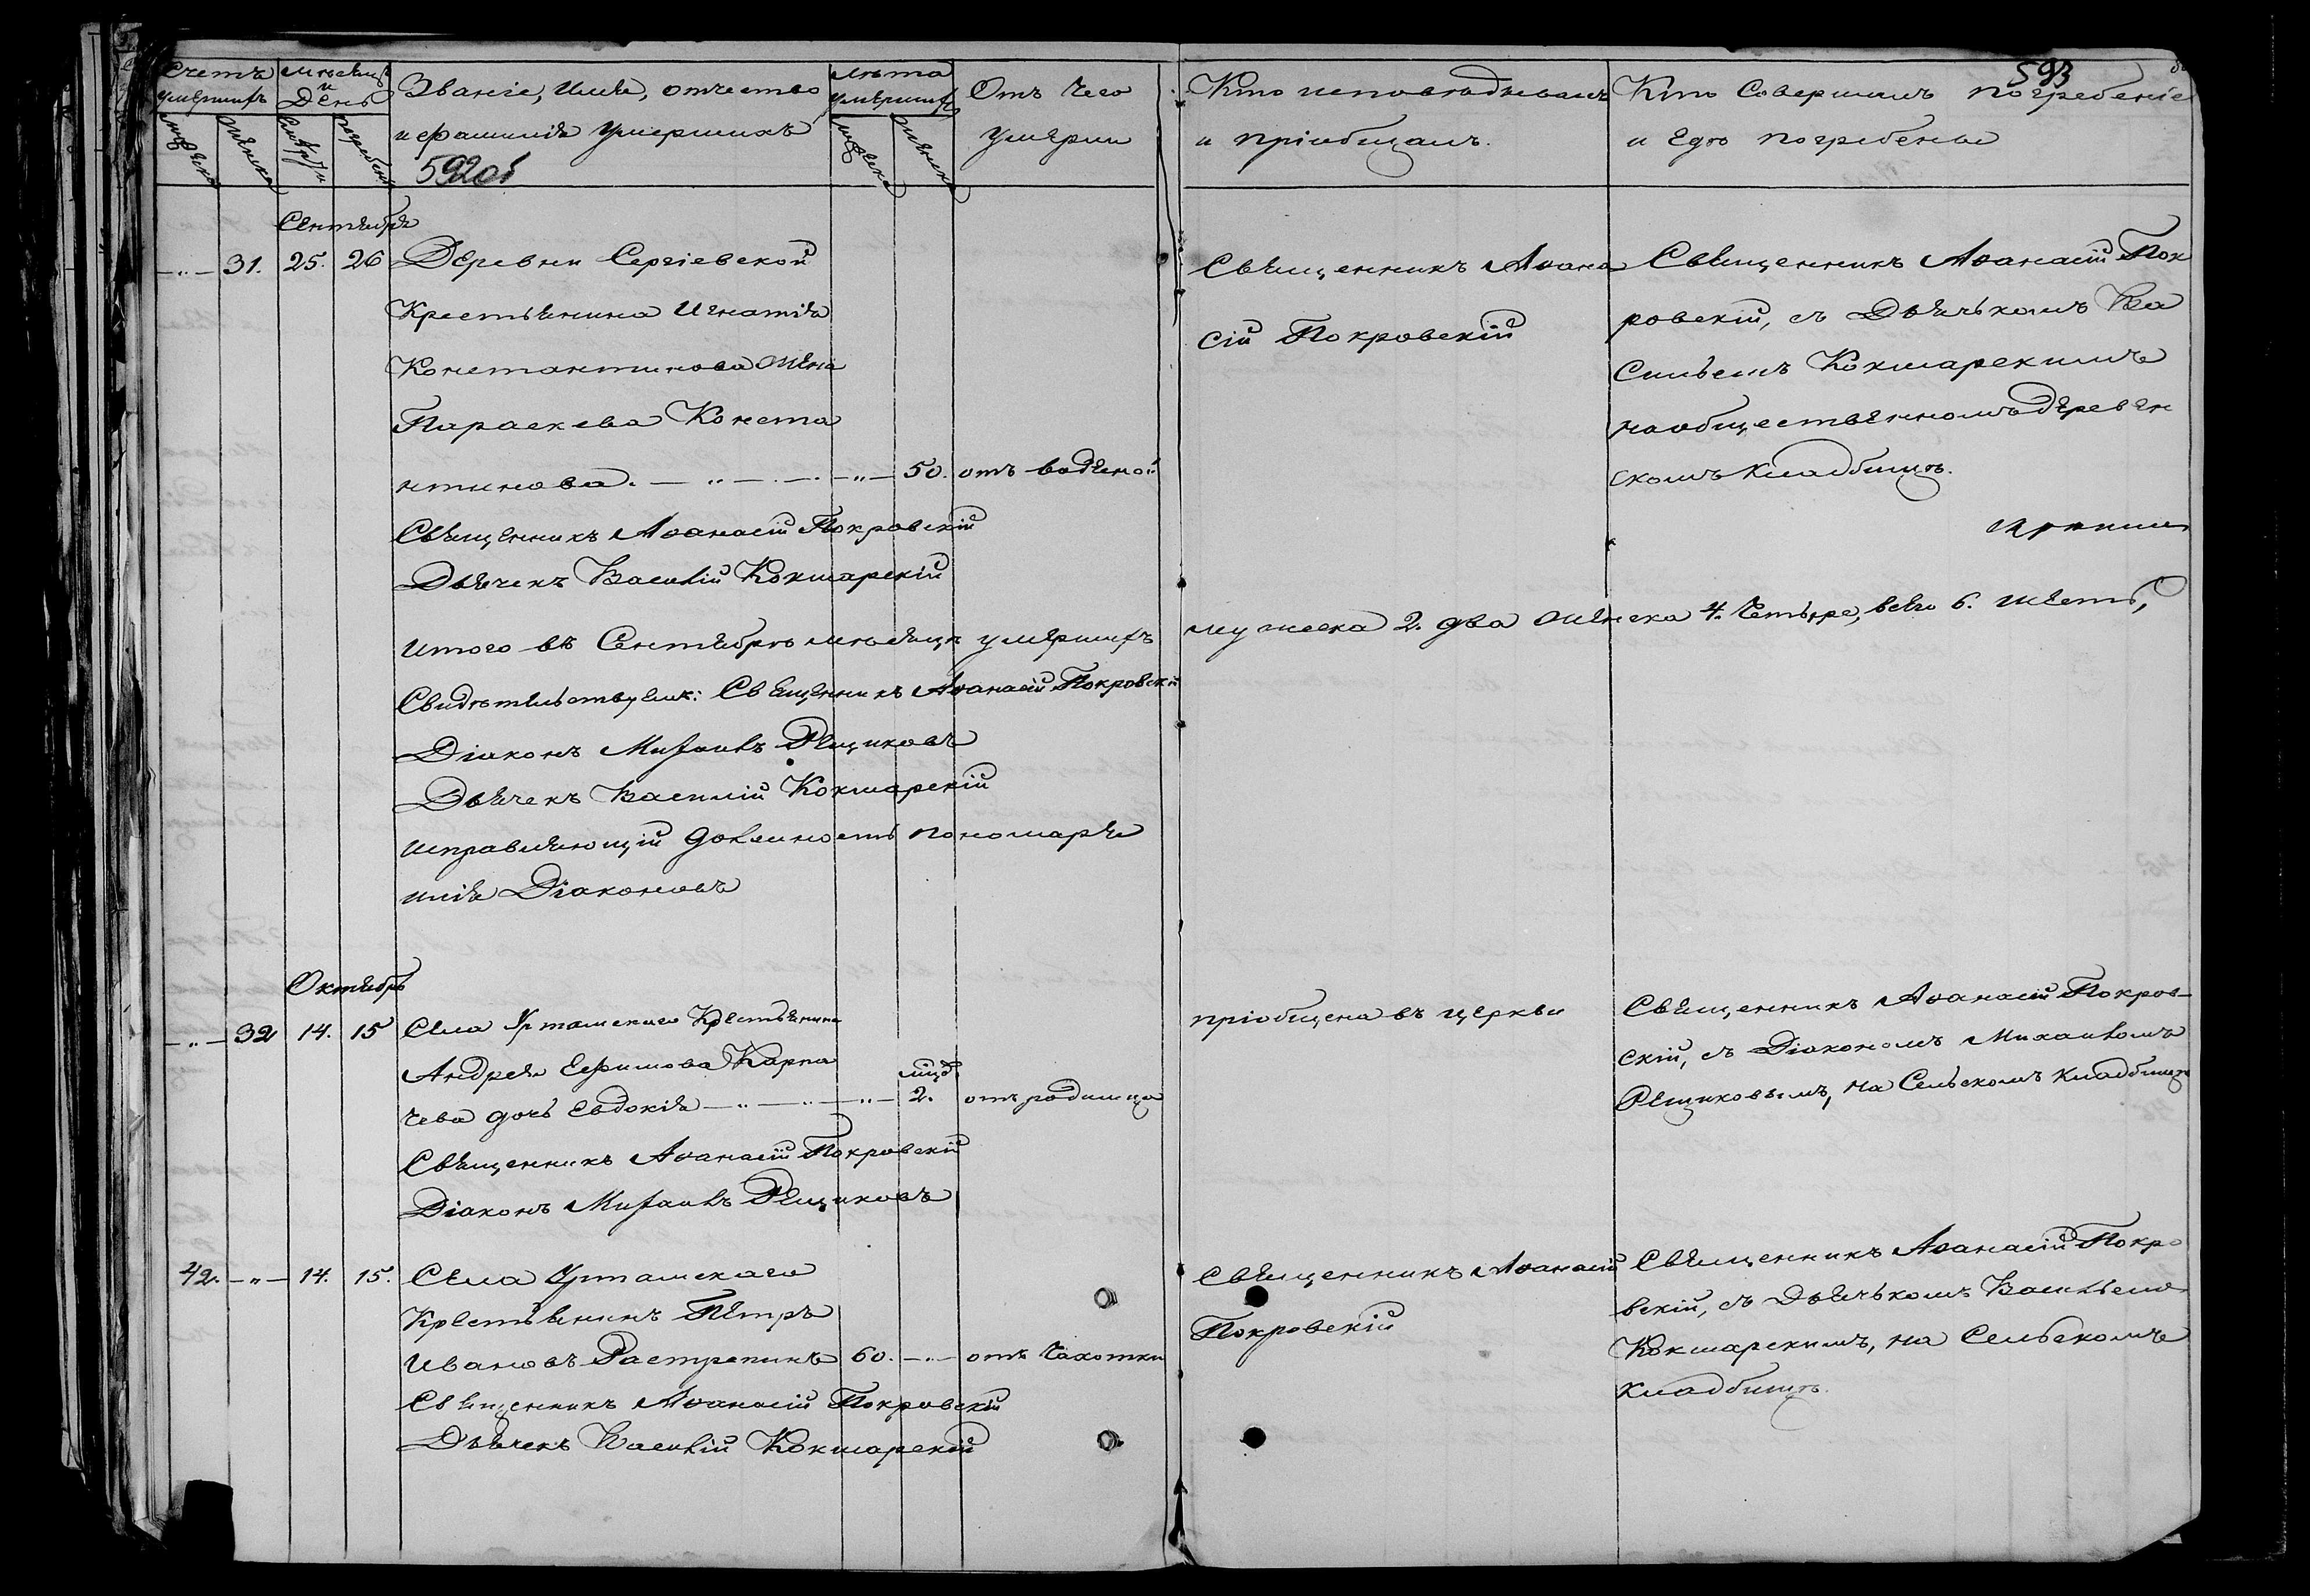 Счетъ умершихъ
мужеска
женска
Мѣсяцъ и День
смерти
погребенія
Званіе, имя, отчество
и фамилія умершихъ
592об
Лѣта умершихъ
мужеска
женска
Отъ чего
умерли
Кто исповѣдывалъ
и пріобщалъ.
593
Кто совершалъ погребеніе
и гдѣ погребены
Сентября
—"— 31. 25. 26 Деревни Сергіевской
Крестьянина Игнатія
Константинова жена
Параскева Конста
нтинова. —"—.—.—"— 50. отъ водяной
Священникъ Аѳана
сій Покровскій
Священникъ Аѳанасій Пок
ровскій, съ Дьячькомъ Ва
сильемъ Кокшарскимъ
на общественномъ деревен
скомъ кладбищѣ.
Священникъ Аѳанасій Покровскій
Дьячекъ Василій Кокшарскій
Итого въ Сентябрѣ мѣсяцѣ умершихъ мужеска 2. два женска 4. четыре, всего 6. шесть,
Свидѣтельствуемъ: Священникъ Аѳанасій Покровскій
Діаконъ Михаилъ Рящиковъ
Дьячекъ Василій Кокшарскій
исправляющій должность пономаря
Илія Діаконовъ
Октябрь
—"— 32 14. 15 Села Урташскаго Крестьянина
Андрея Ефимова Карпа
чева дочь Евдокія —"—"—"— 2. отъ родимца
пріобщена въ церкви
Священникъ Аѳанасій Покров-
скій, съ Діакономъ Михаиломъ
Рящиковымъ, на Сельскомъ кладбищѣ
Священникъ Аѳанасій Покровскій
Діаконъ Михаилъ Рящиковъ
42. —"— 14. 15. Села Урташскаго
Крестьянинъ Петръ
Ивановъ Растрепинъ 60. —"— отъ чахотки
Священникъ Аѳанасій
Покровскій
Священникъ Аѳанасій Покро
вскій, съ Дьячькомъ Васильемъ
Кокшарскимъ, на Сельскомъ
кладбищѣ.
Священникъ Аѳанасій Покровскій
Дьячекъ Василій Кокшарскій